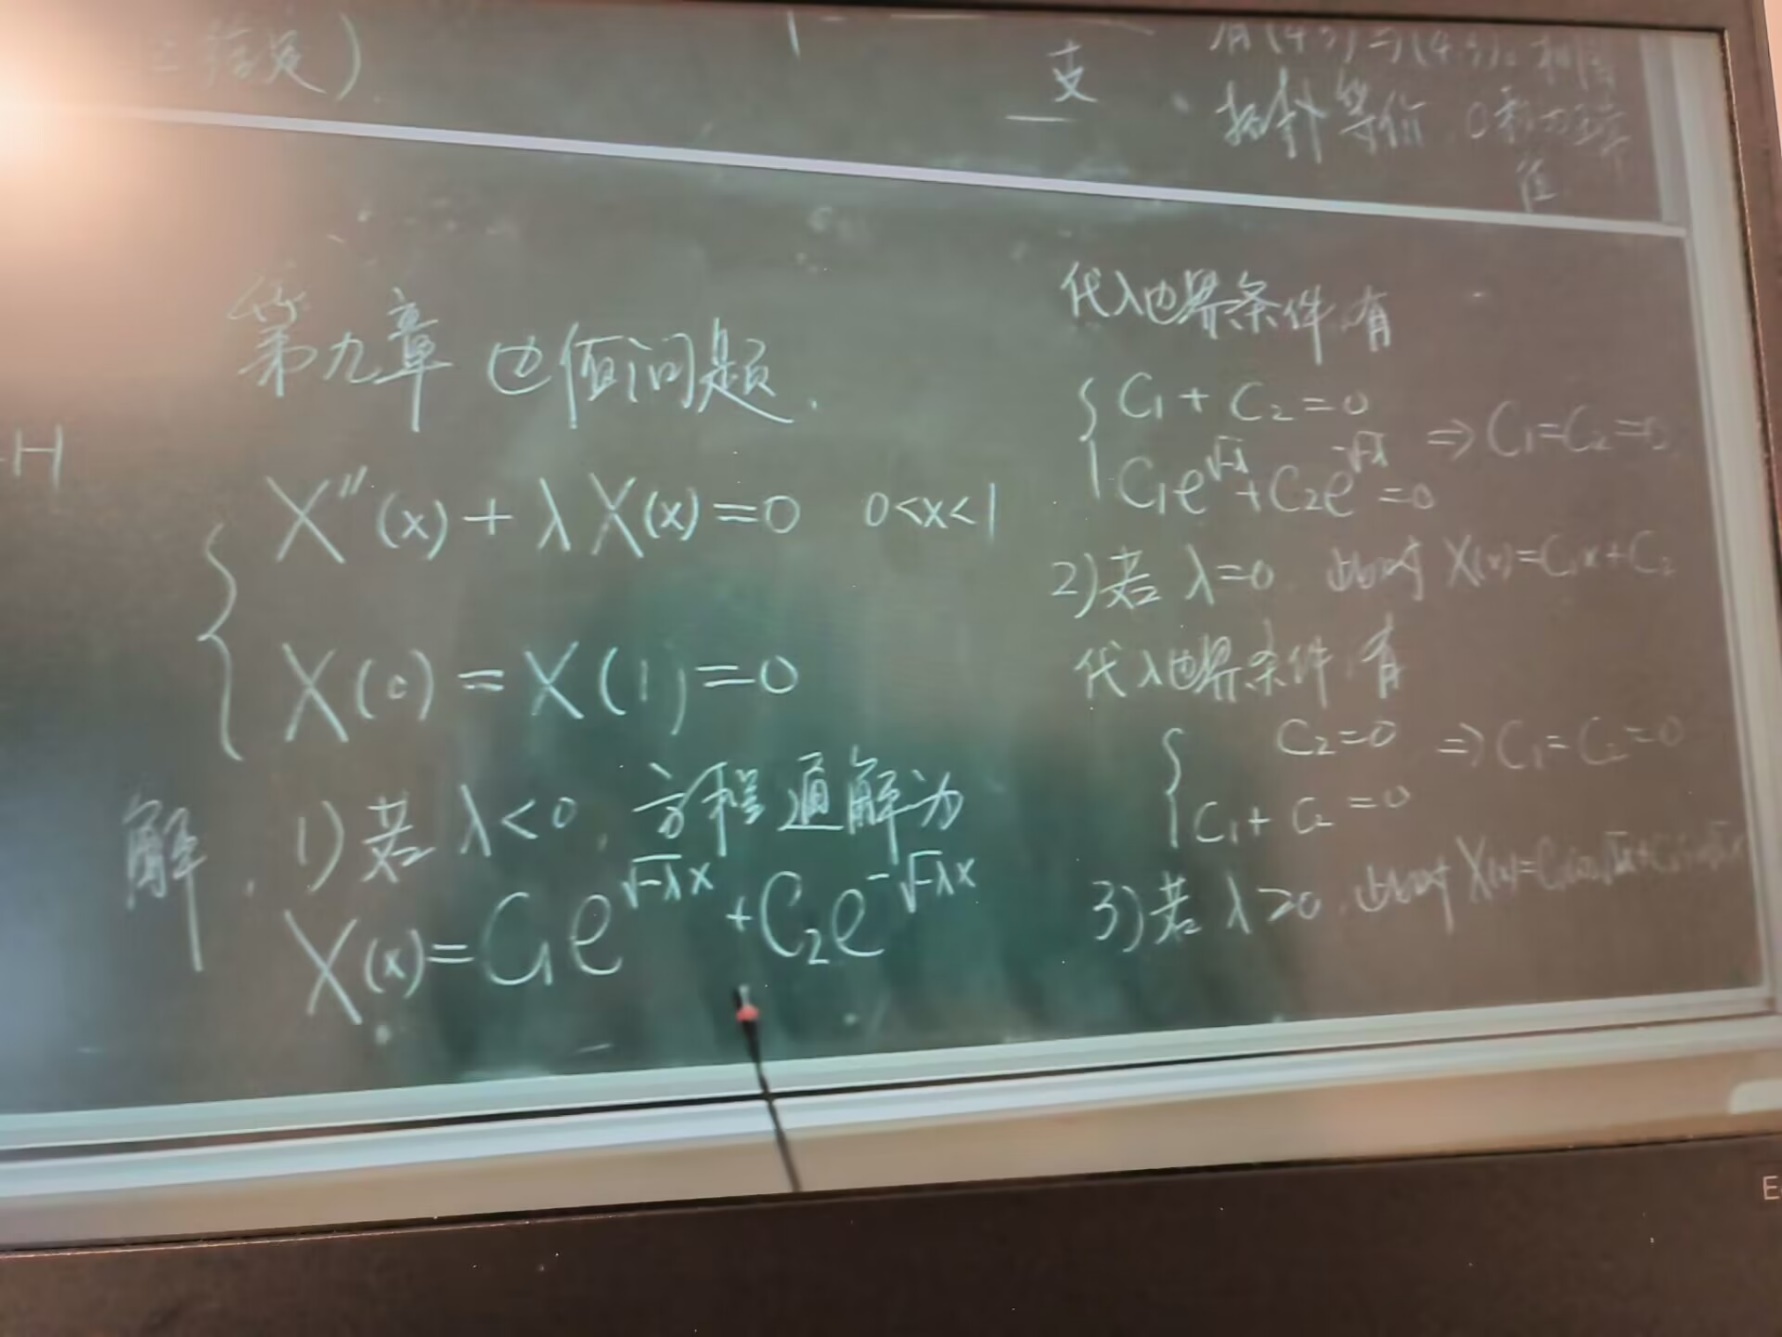 结定)
支
拓扑等价
值
第九章 边值问题.
H
X''(x)+λX(x)=0 0<x<1
X(0)=X(1)=0
解. 1)若 λ<0, 方程通解为
X(x)=C₁e^{√-λx}+C₂e^{-√-λx}
代入边界条件,有
C₁+C₂=0
C₁e^{√-λ}+C₂e^{-√-λ}=0 ⇒C₁=C₂=0
2)若 λ=0. 此时 X(x)=C₁x+C₂
代入边界条件,有
C₂=0 ⇒C₁=C₂=0
C₁+C₂=0
3)若 λ>0, 此时 X(x)=
E